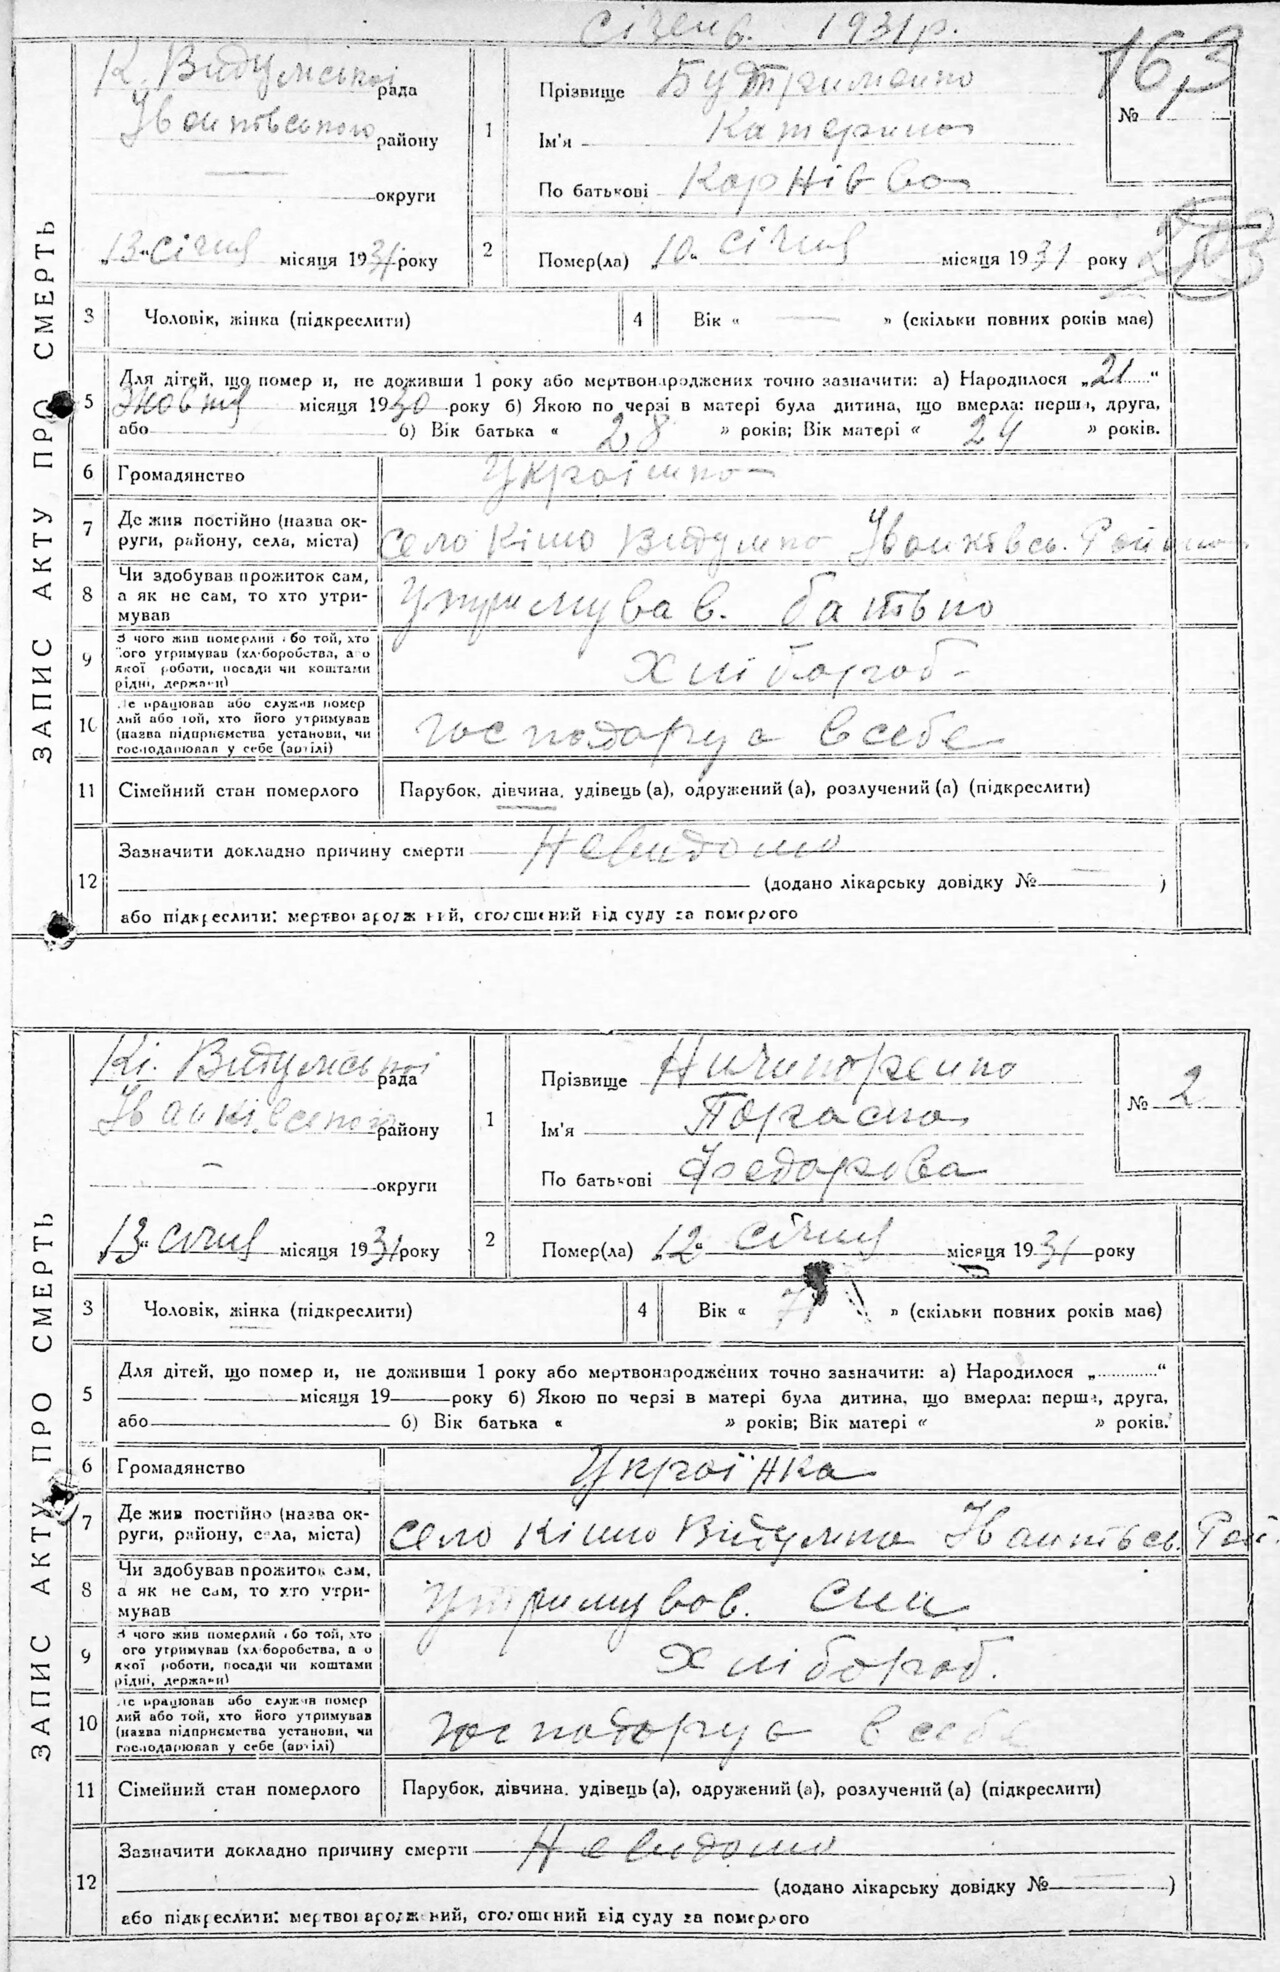 січень 1931р.
ЗАПИС АКТУ ПРО СМЕРТЬ
К. Видумської рада
Іванківського району
округи
„13“ січня місяця 1931 року
1
Прізвище Бутрименко
Ім'я Катерина
По батькові Карнівва
№
163
2
Помер(ла) „10“ січня місяця 1931 року
3
Чоловік, жінка (підкреслити)
4
Вік « — » (скільки повних років має)
5
Для дітей, що помер и, не доживши 1 року або мертвонароджених точно зазначити: а) Народилося „21“
Жовтня місяця 1930 року б) Якою по черзі в матері була дитина, що вмерла: перша, друга,
або б) Вік батька « 28 » років; Вік матері « 24 » років.
6
Громадянство Українка
7
Де жив постійно (назва ок-
руги, району, села, міста)
село Кімо Видумка Іванківсь. Району
8
Чи здобував прожиток сам,
а як не сам, то хто утри-
мував
Утримував. батько
9
З чого жив померлий або той, хто
його утримував (хліборобства, а о
якої роботи, посади чи коштами
рідні, держави)
Хлібороб
10
Де працював або служив помер
лий або той, хто його утримував
(назва підприємства установи, чи
господарював у себе (артілі)
господарує в себе
11
Сімейний стан померлого
Парубок, дівчина, удівець (а), одружений (а), розлучений (а) (підкреслити)
12
Зазначити докладно причину смерти Невидомо
(додано лікарську довідку № — )
або підкреслити: мертвонароджений, оголошений від суду за померлого
ЗАПИС АКТУ ПРО СМЕРТЬ
Кі. Видумської рада
Іванківського району
— округи
„13“ січня місяця 1931 року
1
Прізвище Ничипоренко
Ім'я Параска
По батькові Федорова
№ 2
2
Помер(ла) „12“ січня місяця 1931 року
3
Чоловік, жінка (підкреслити)
4
Вік « » (скільки повних років має)
5
Для дітей, що помер и, не доживши 1 року або мертвонароджених точно зазначити: а) Народилося „ “
місяця 19 року б) Якою по черзі в матері була дитина, що вмерла: перша, друга,
або б) Вік батька « » років; Вік матері « » років.
6
Громадянство Українка
7
Де жив постійно (назва ок-
руги, району, села, міста)
село Кімо Видумка Іванківсь. Рай.
8
Чи здобував прожиток сам,
а як не сам, то хто утри-
мував
Утримував. син
9
З чого жив померлий або той, хто
ого утримував (хліборобства, а о
якої роботи, посади чи коштами
рідні, держави)
Хлібороб.
10
Де працював або служив помер
лий або той, хто його утримував
(назва підприємства установи, чи
господарював у себе (артілі)
господарує в себе
11
Сімейний стан померлого
Парубок, дівчина, удівець (а), одружений (а), розлучений (а) (підкреслити)
12
Зазначити докладно причину смерти Невидомо
(додано лікарську довідку № — )
або підкреслити: мертвонароджений, оголошений від суду за померлого